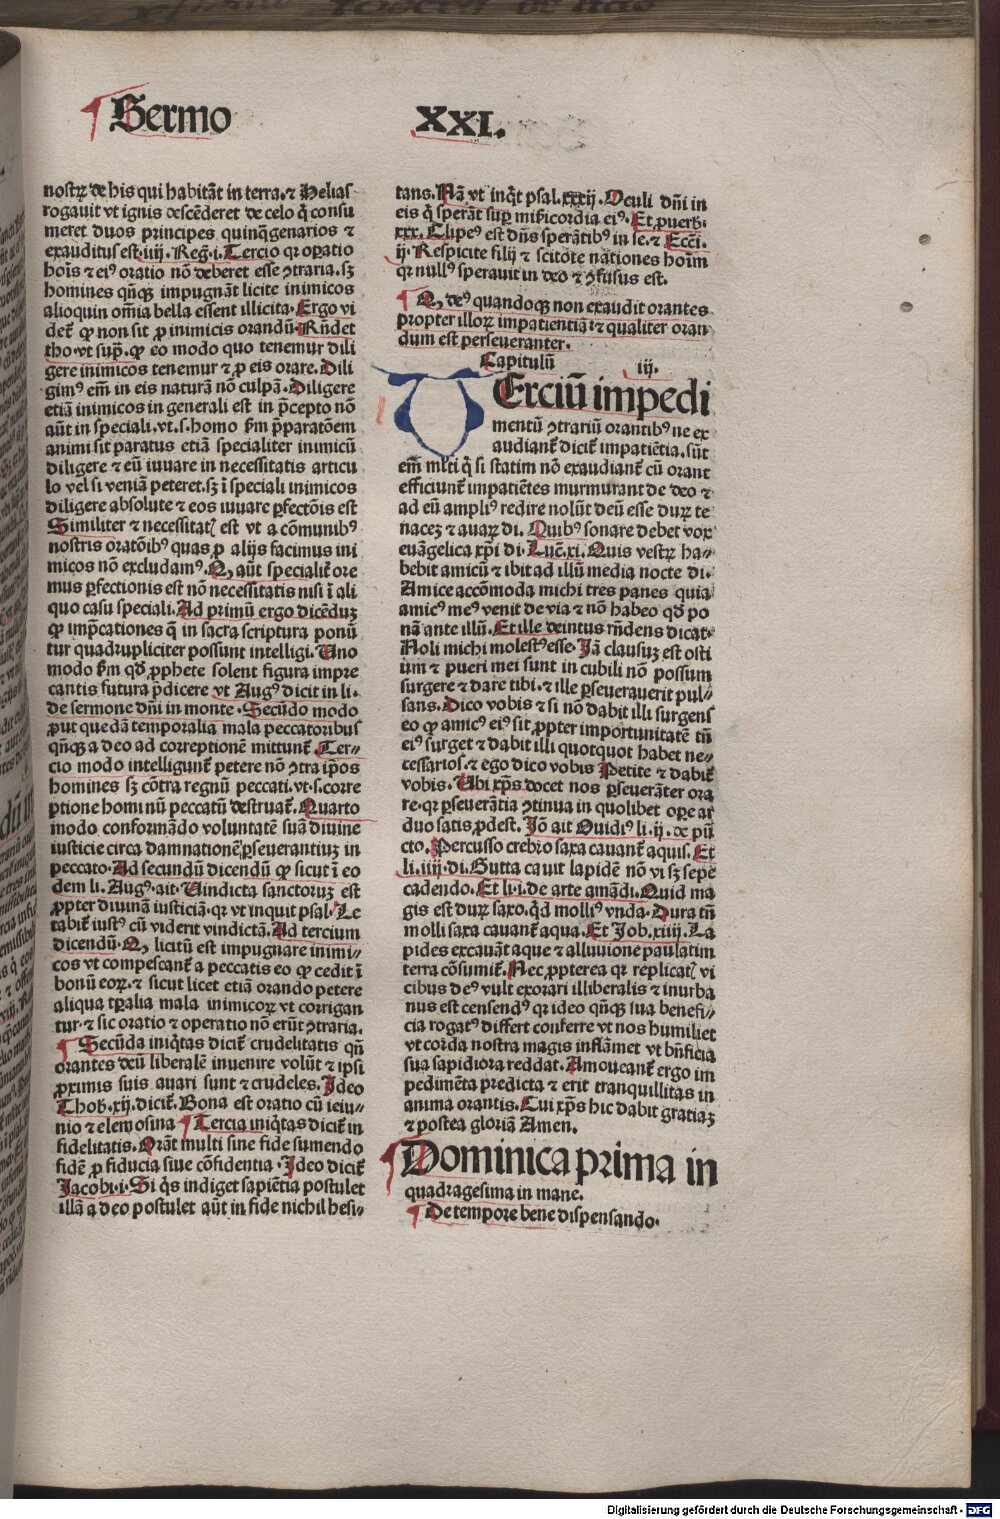 Sermo XXI.
nostrꝝ de his qui habitāt in terra. ⁊ Helias
rogauit vt ignis descēderet de celo q̇ consu
meret duos principes quinq̄genarios ⁊
exauditus est. iiij. Reg. i. Tercio qꝛ oꝑatio
hoīs ⁊ eiꝰ oratio nō deberet esse ꝯtraria. sꝫ
homines qn̄qꝫ impugnāt licite inimicos
alioquin om̄ia bella essent illicita. Ergo vi
det̄ ꝙ non sit ꝓ inimicis orandū. Rn̄det
tho. vt supͣ. ꝙ eo modo quo tenemur dili
gere inimicos tenemur ⁊ ꝓ eis orare. Dili
gimꝰ em̄ in eis naturā nō culpā. Diligere
etiā inimicos in generali est in p̄cepto nō
aūt in speciali. vt. s. homo ẜm p̄paratōem
animi sit paratus etiā specialiter inimicū
diligere ⁊ eū iuuare in necessitatis articu
lo vel si veniā peteret. sꝫ ī speciali inimicos
diligere absolute ⁊ eos iuuare ꝑfectōis est
Similiter ⁊ necessitatꝭ est vt a cōmunibꝰ
nostris oratōibꝰ quas ꝓ alijs facimus ini
micos nō excludamꝰ. Qꝫ aūt specialiṫ ore
mus ꝑfectionis est nō necessitatis nisi ī ali
quo casu speciali. Ad primū ergo dicēduꝫ
ꝙ imp̄cationes q̄ in sacra scriptura ponū
tur quadrupliciter possunt intelligi. Uno
modo ẜm qd̄ ꝓphete solent figura impre
cantis futura p̄dicere vt Augꝰ dicit in li.
de sermone dn̄i in monte. Secūdo modo
ꝓut quedā temporalia mala peccatoribus
qn̄qꝫ a deo ad correptionē mittunt̄. Ter⸗
cio modo intelligunt̄ petere nō ꝯtra ip̄os
homines sꝫ cōtra regnū peccati. vt. s. corre
ptione hominū peccatū destruat̄. Quarto
modo conformādo voluntatē suā diuine
iusticie circa damnationē ꝑseuerantiuꝫ in
peccato. Ad secundū dicendū ꝙ sicut ī eo
dem li. Augꝰ. ait. Uindicta sanctoruꝫ est
ꝓpter diuinā iusticiā. qꝛ vt inquit psal. Le
tabit̄ iustꝰ cū viderit vindictā. Ad tercium
dicendū. Qꝫ licitū est impugnare inimi⸗
cos vt compescant̄ a peccatis eo ꝙ cedit ī
bonū eoꝝ. ⁊ sicut licet etiā orando petere
aliqua tꝑalia mala inimicoꝝ vt corrigan
tur. ⁊ sic oratio ⁊ operatio nō erūt ꝯtraria.
¶ Secūda iniq̇tas dicit̄ crudelitatis qn̄
orantes deū liberalē inuenire volūt ⁊ ipsi
ꝓximis suis auari sunt ⁊ crudeles. Ideo
Thob. xij. dicit̄. Bona est oratio cū ieiu⸗
nio ⁊ elemosina ¶ Tercia iniq̇tas dicit̄ in
fidelitatis. Orāt multi sine fide sumendo
fidē ꝓ fiducia siue cōfidentia. Ideo dicit̄
Jacobi. i. Si q̇s indiget sapiētia postulet
illā a deo postulet aūt in fide nichil hesi⸗
tans. Nā vt inq̇t psal. xxxij. Oculi dn̄i in
eis q̇ sperāt suꝑ mīẜicordia eiꝰ. Et ꝓuerb.
xxx. Clipeꝰ est dn̄s sperātibꝰ in se. ⁊ Ecc̄i.
ij. Respicite filij ⁊ scitote nationes hoīm
qꝛ nullꝰ sperauit in deo ⁊ ꝯfusus est.
¶ Qꝫ deꝰ quandoqꝫ non exaudit orantes
propter illoꝝ impatientiā ⁊ qualiter oran
dum est perseueranter.
Capitulū iij.
Terciū impedi
mentū ꝯtrariū orantibꝰ ne ex
audiant̄ dicit̄ impatiētia. sūt
em̄ ml̓ti q̇ si statim nō exaudiant̄ cū orant
efficiunt̄ impatiētes murmurant de deo ⁊
ad eū ampliꝰ redire nolūt deū esse duꝝ te
nacez ⁊ auaꝝ di. Quibꝰ sonare debet vox
euāgelica xp̄i di. Luc̄. xi. Quis vestrꝝ ha⸗
bebit amicū ⁊ ibit ad illū media nocte di.
Amice accōmoda michi tres panes quia
amicꝰ meꝰ venit de via ⁊ nō habeo qd̄ po
nā ante illū. Et ille deintus rn̄dens dicat.
Noli michi molestꝰ esse. Jā clausuꝫ est osti
um ⁊ pueri mei sunt in cubili nō possum
surgere ⁊ dare tibi. ⁊ ille ꝑseuerauerit pul⸗
sans. Dico vobis ⁊ si nō dabit illi surgens
eo ꝙ amicꝰ eiꝰ sit ꝓpter importunitatē tn̄
eiꝰ surget ⁊ dabit illi quotquot habet ne⸗
cessarios. ⁊ ego dico vobis Petite ⁊ dabit̄
vobis. Ubi xp̄s docet nos ꝑseuerāter ora
re. qꝛ ꝑseuerātia ꝯtinua in quolibet oꝑe ar
duo satis ꝓdest. Jō ait Ouidiꝰ li. ij. de pū
cto. Percusso crebro saxa cauant̄ aquis. Et
li. iiij. di. Gutta cauit lapidē nō vi sꝫ sepe
cadendo. Et li. i. de arte amādi. Quid ma
gis est duꝝ saxo. q̇d molliꝰ vnda. Dura tn̄
molli saxa cauant̄ aqua. Et Job. xiiij. La
pides excauāt aque ⁊ alluuione paulatim
terra cōsumit̄. Nec ꝓpterea qꝛ replicatꝭ vi
cibus deꝰ vult exorari illiberalis ⁊ inurba
nus est censendꝰ qꝛ ideo qn̄qꝫ sua benefi⸗
cia rogatꝰ differt conferre vt nos humiliet
vt corda nostra magis inflāmet vt bn̄ficia
sua sapidiora reddat. Amoueant̄ ergo im
pedimēta predicta ⁊ erit tranquillitas in
anima orantis. Cui xp̄s hic dabit gratiaꝫ
⁊ postea gloriā Amen.
¶ Dominica prima in
quadragesima in mane.
¶ De tempore bene dispensando.
Digitalisierung gefördert durch die Deutsche Forschungsgemeinschaft - DFG